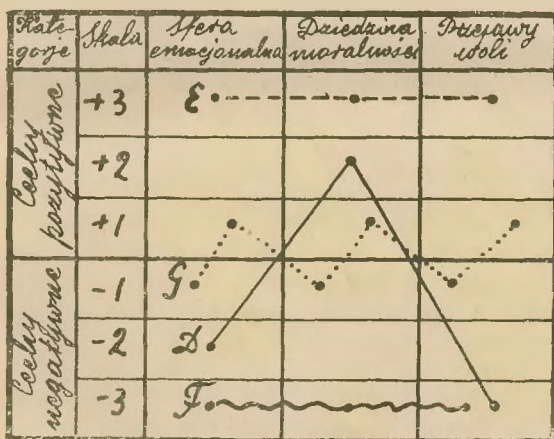 Kate-
gorje
Skala
Sfera
emocjonalna
Dziedzina
moralności
Przejawy
woli
Cechy
pozytywne
+3
E
+2
+1
Cechy
negatywne
-1
G
-2
D
-3
F